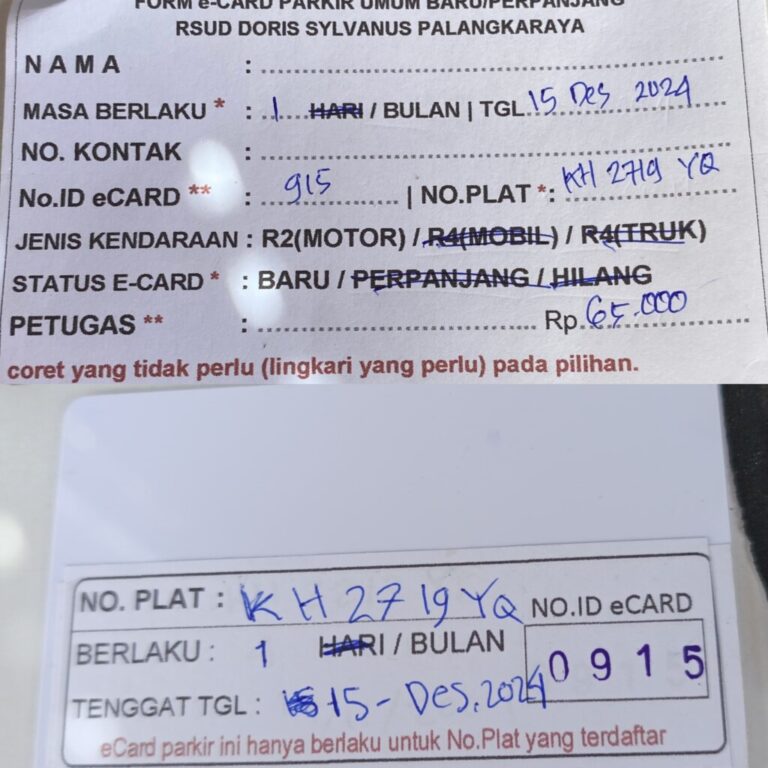 FORM e-CARD PARKIR UMUM BARU/PERPANJANG
RSUD DORIS SYLVANUS PALANGKARAYA
NAMA :
MASA BERLAKU * : 1 HARI / BULAN | TGL. 15 Des 2024
NO. KONTAK :
No.ID eCARD ** : 915 | NO.PLAT *: KH 2719 YQ
JENIS KENDARAAN : R2(MOTOR) / R4(MOBIL) / R4(TRUK)
STATUS E-CARD * : BARU / PERPANJANG / HILANG
PETUGAS ** : Rp. 65.000
coret yang tidak perlu (lingkari yang perlu) pada pilihan.
NO. PLAT : KH 2719 YQ NO.ID eCARD
BERLAKU : 1 HARI / BULAN 0915
TENGGAT TGL : 15 - Des. 2024
eCard parkir ini hanya berlaku untuk No.Plat yang terdaftar